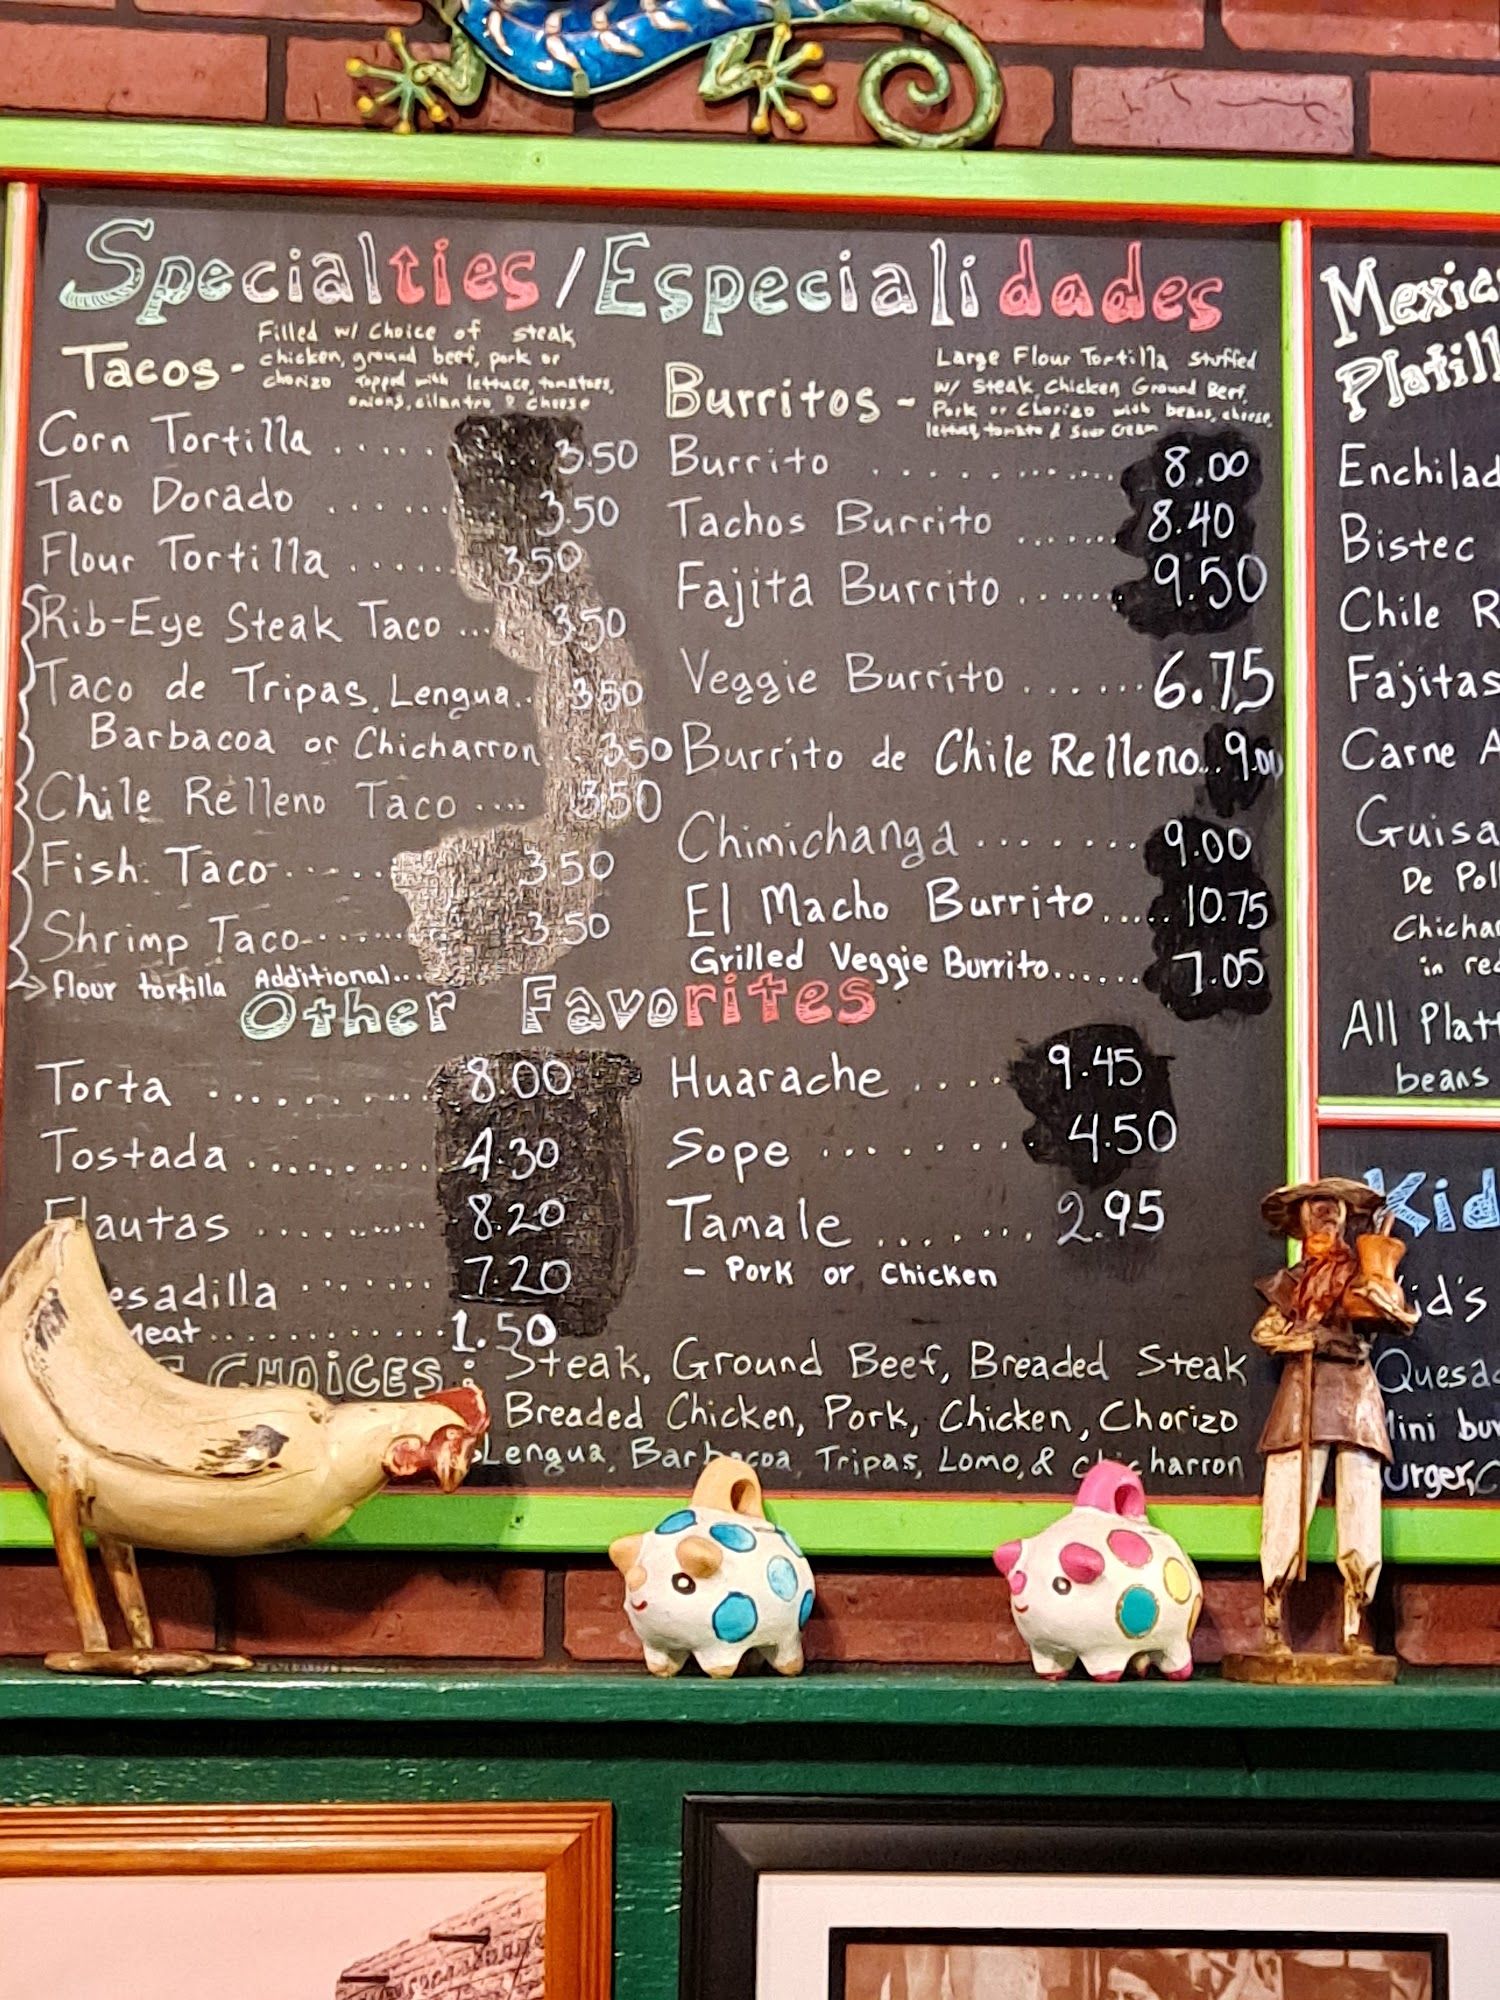 Specialties/Especialidades
Tacos - Filled w/ Choice of steak,
chicken, ground beef, pork or
chorizo topped with lettuce, tomatoes,
onions, cilantro & cheese
Corn Tortilla ..... 3.50
Taco Dorado ...... 3.50
Flour Tortilla ...... 3.50
Rib-Eye Steak Taco ... 3.50
Taco de Tripas, Lengua.. 3.50
Barbacoa or Chicharron 3.50
Chile Relleno Taco .... 3.50
Fish Taco...... 3.50
Shrimp Taco....... 3.50
flour tortilla Additional...
Burritos - Large Flour Tortilla Stuffed
w/ Steak, Chicken Ground Beef,
Pork or Chorizo with beans, cheese,
lettuce, tomato & Sour Cream
Burrito ............ 8.00
Tachos Burrito ....... 8.40
Fajita Burrito ...... 9.50
Veggie Burrito ...... 6.75
Burrito de Chile Relleno.. 9.00
Chimichanga ........ 9.00
El Macho Burrito..... 10.75
Grilled Veggie Burrito...... 7.05
Other Favorites
Torta .......... 8.00
Tostada .......... 4.30
Flautas .......... 8.20
esadilla ....... 7.20
Meat ............ 1.50
Huarache .... 9.45
Sope ........ 4.50
Tamale ....... 2.95
- Pork or Chicken
CHOICES: Steak, Ground Beef, Breaded Steak
Breaded Chicken, Pork, Chicken, Chorizo
Lengua, Barbacoa, Tripas, Lomo, & chicharron
Mexic
Platill
Enchilad
Bistec
Chile R
Fajitas
Carne A
Guisa
De Poll
Chichar
in red
All Platt
beans
Kid
id's
Quesad
Mini bur
urger, C